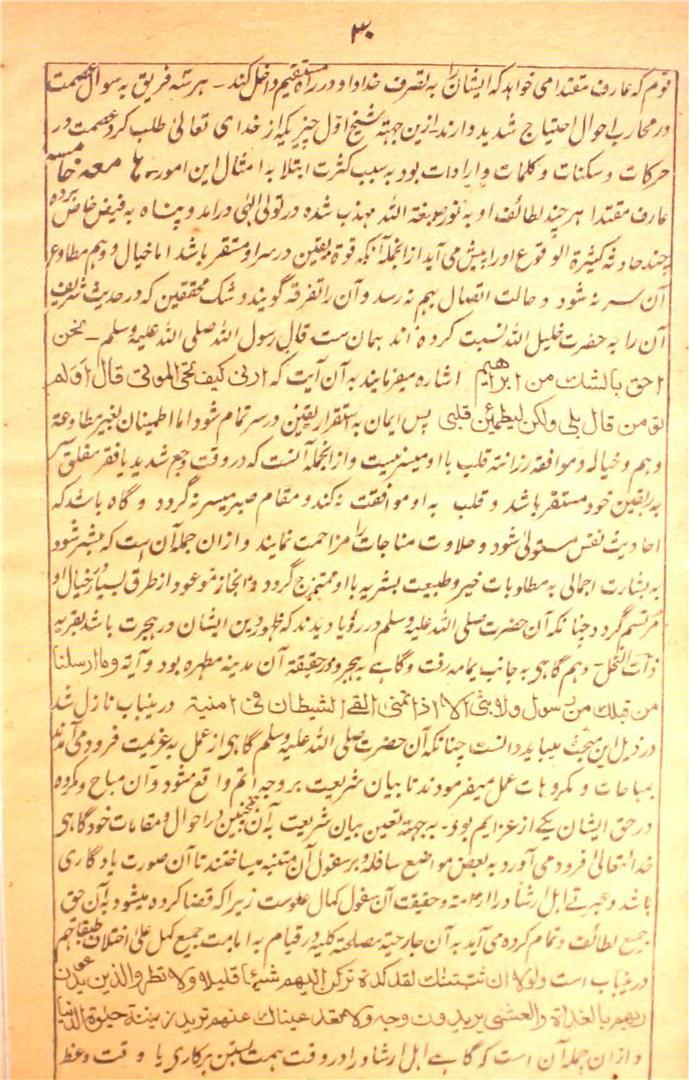 ۳۰
قوم که عارف مقتدا می خواهد که ایشان را به تصرف خداداد در راه مستقیم داخل کند ۔ هر سه فریق به سوال عصمت
در محاربه احوال احتیاج شدید دارند۔ ازین جهة شیخ اوّل چیزیکه از خدای تعالیٰ طلب کرد عصمت در
حرکات و سکنات و کلمات و ارادات بود به سبب کثرت ابتلا به امثال این امور۔ ها معه خامسه
عارف مقتدا هر چند لطائف او به نور صبغة الله مهذب شده در تولی الٰهی درآمد و پناه به فیض خاص برده
چند حادثه کثیرة الوقوع او را پیش می آید از انجمله آنکه قوة یقین در سر او مستقر باشد اما خیال و وهم مطاوع
آن سر نه شود و حالت اتصال بهم نه رسد و آن را تفرقه گویند و شک محققین که در حدیث شریف
آن را به حضرت خلیل الله نسبت کرده اند همان ست قال رسول الله صلی الله علیه وسلم ۔ نحن
احق بالشك من ابراهیم اشاره میفرمایند به آن آیت که ارنی کیف تحی الموتی قال اولم
تومن قال بلی ولکن لیطمئن قلبی پس ایمان به استقرار یقین در سر تمام شود اما اطمینان بغیر مطاوعة
وهم و خیال و موافقه رزانة قلب با او میسر نیست و از انجمله آنست که در وقت وجع شدید یا فقر مفلق سر
به یقین خود مستقر باشد و قلب به او موافقت نه کند و مقام صبر میسر نه گردد و گاه باشد که
احادیث نفس مستولی شود و حلاوت مناجات را مزاحمت نمایند و از ان جمله آن است که مبشر شود
به بشارت اجمالی به مطلوبات خیر و طبیعت بشریه با او ممتزج گردد و انجاز موعود از طرق بسیار در خیال او
مرتسم گردد چنانکه آن حضرت صلی الله علیه وسلم در رؤیا دیدند که ظهور دین ایشان در هجرت باشد بقریه
ذات النخل۔ وهم گاهی به جانب یمامه رفت و گاهے به هجر و در حقیقة آن مدینه مطهره بود و آیة وما ارسلنا
من قبلك من رسول ولا نبی الا اذا تمنی القی الشیطان فی امنیته درینباب نازل شد
در ذیل این مبحث میباید دانست چنانکه آن حضرت صلی الله علیه وسلم گاهی از عمل به عزیمت فرود می آمدند
بمباحات و مکروهات عمل میفرمودند تا بیان شریعت بر وجه اتم واقع میشود و آن مباح و مکروه
در حق ایشان یکے از عزایم بود۔ به جهة تعین بیان شریعت به آن همچنین در احوال و مقامات خود گاهی
خدا تعالیٰ فرود می آورد به بعض مواضع سافله و بر سفول آن متنبه میساختند تا آن صورت یادگاری
باشد و عبرتے اهل ارشاد را و حقیقت آن سفول کمال علوست زیرا که قضا کرده میشود به آن حق
جمیع لطائف و تمام کرده می آید به آن جارحیة مصلحة کلیه در قیام به امامت جمیع کمل علیٰ اختلاف طبقاتهم
درینباب است ولولا ان ثبتنك لقد کدت ترکن الیهم شیئا قلیلا ولا تطرد الذین یدعون
ربهم بالغداة والعشی یریدون وجه ولا تعد عیناك عنهم ترید زینة حیوة الدنیا
و از ان جمله آن است که گاهے اهل ارشاد را در وقت همت بستن برکاری یا وقت وعظ